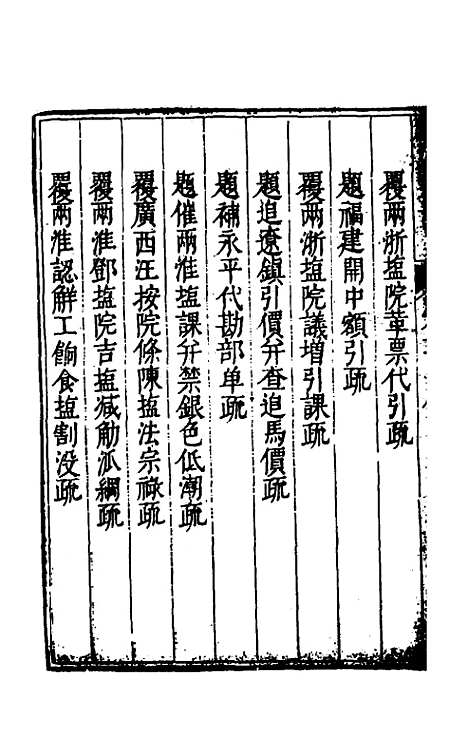 覆兩浙塩院革票代引疏
題福建開中額引疏
覆兩浙塩院議增引課疏
題追遼鎮引價并查追馬價疏
題補永平代勘部单疏
題催兩淮塩課并禁銀色低潮疏
覆廣西汪按院條陳塩法宗祿疏
覆兩淮鄧塩院吉塩减觔派綱疏
覆兩淮認觧工餉食塩割没疏